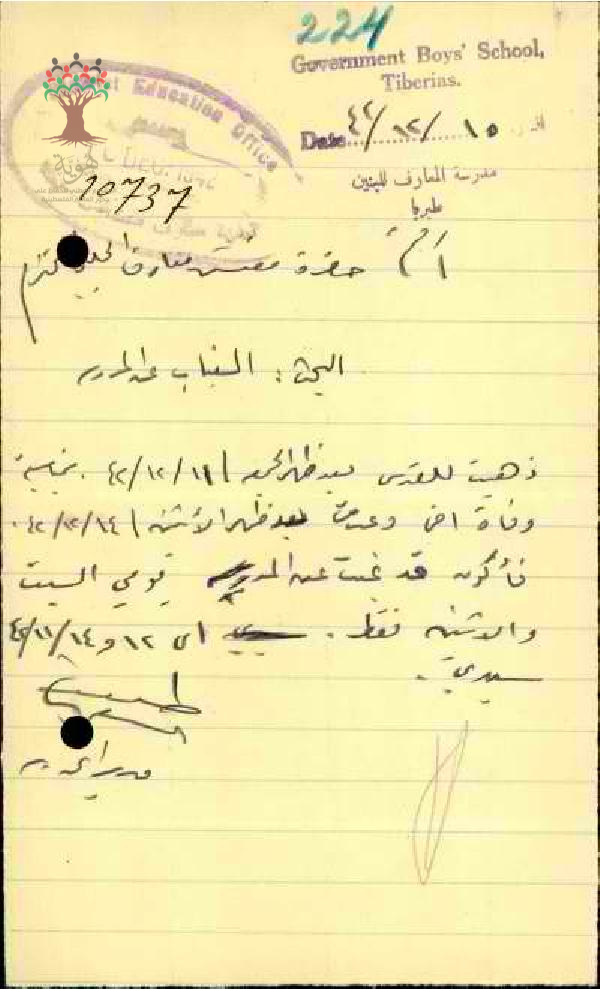 224
Government Boys' School,
Tiberias.
Date ١٥/١٢/٤٢
مدرسة المعارف للبنين
طبريا
Education Office
10737
حضرة مفتش معارف الجليل المحترم
البحث: الغياب عن المدرسة
ذهبت للقدس بعد ظهر الجمعة ١١/١٢/٤٢ بمناسبة
وفاة اخي وعدت بعد ظهر الأثنين ١٤/١٢/٤٢.
فأكون قد غبت عن المدرسة يومي السبت
والاثنين فقط. اي ١٢ و ١٤/١٢/٤٢
سيدي.
مدير المدرسة